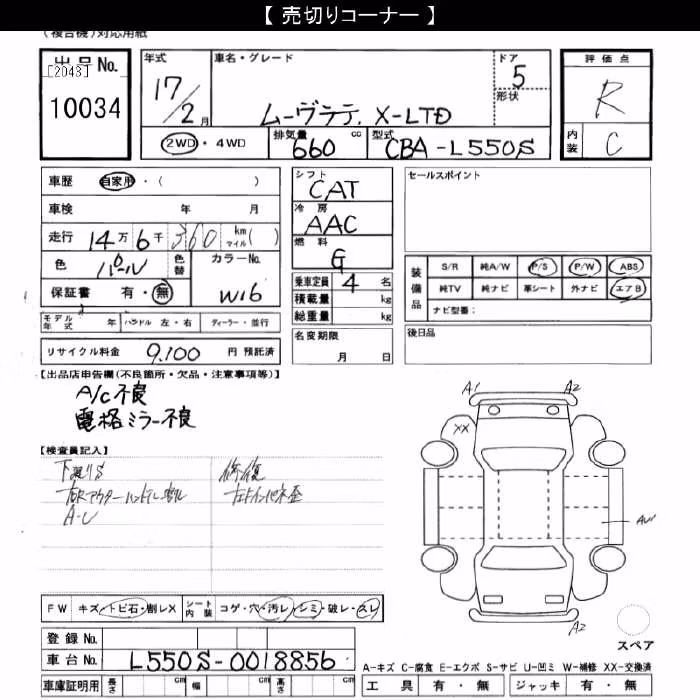 【 売切りコーナー 】
(複合機)対応用紙
出品No.
[2043]
10034
年式
17/2月
車名・グレード
ムーヴラテ. X-LTD
ドア
5
形状
評価点
R
内装
C
2WD・4WD
排気量
660 cc
型式
CBA-L550S
車歴 自家用・( )
車検 年 月
走行 14万6千360 km マイル( )
色 パール
色替
カラーNo.
W16
保証書 有・無
モデル年式 年 ハンドル 左・右 ディーラー・並行
リサイクル料金 9,100 円 預託済
シフト
CAT
冷房
AAC
燃料
G
乗車定員 4 名
積載量 kg
総重量 kg
名変期限
月 日
セールスポイント
装備品
S/R 純A/W P/S P/W ABS
純TV 純ナビ 革シート 外ナビ エアB
ナビ型番:
後日品
【出品店申告欄(不良箇所・欠品・注意事項等)】
A/C不良
電格ミラー不良
【検査員記入】
下廻りS
A-U
修復
A1 A2
XX
A2
スペア
FW キズ・トビ石・割レX
シート内装 コゲ・穴・汚レ・シミ・破レ・スレ
登録No.
車台No. L550S-0018856
車庫証明用 長さ cm 幅 cm 高さ cm
A-キズ C-腐食 E-エクボ S-サビ U-凹ミ W-補修 XX-交換済
工具 有・無 ジャッキ 有・無